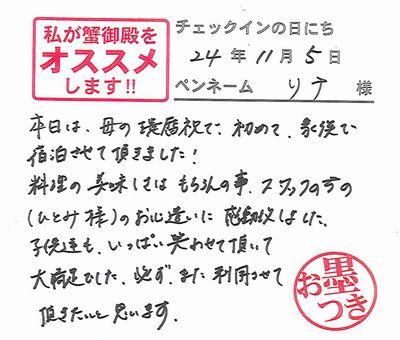 私が蟹御殿を
オススメ
します!!
チェックインの日にち
24年11月5日
ペンネーム リナ 様
本日は、母の還暦祝で、初めて、家族で
宿泊させて頂きました!
料理の美味しさはもちろんの事、スタッフの方の
(ひとみ様)のお心遣いに感動しました。
子供達も、いっぱい笑わせて頂いて
大満足でした。必ず、また利用させて
頂きたいと思います。
お墨つき